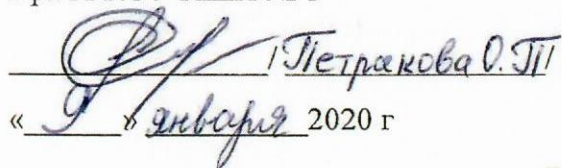 /Петракова О.П/
«9» января 2020 г